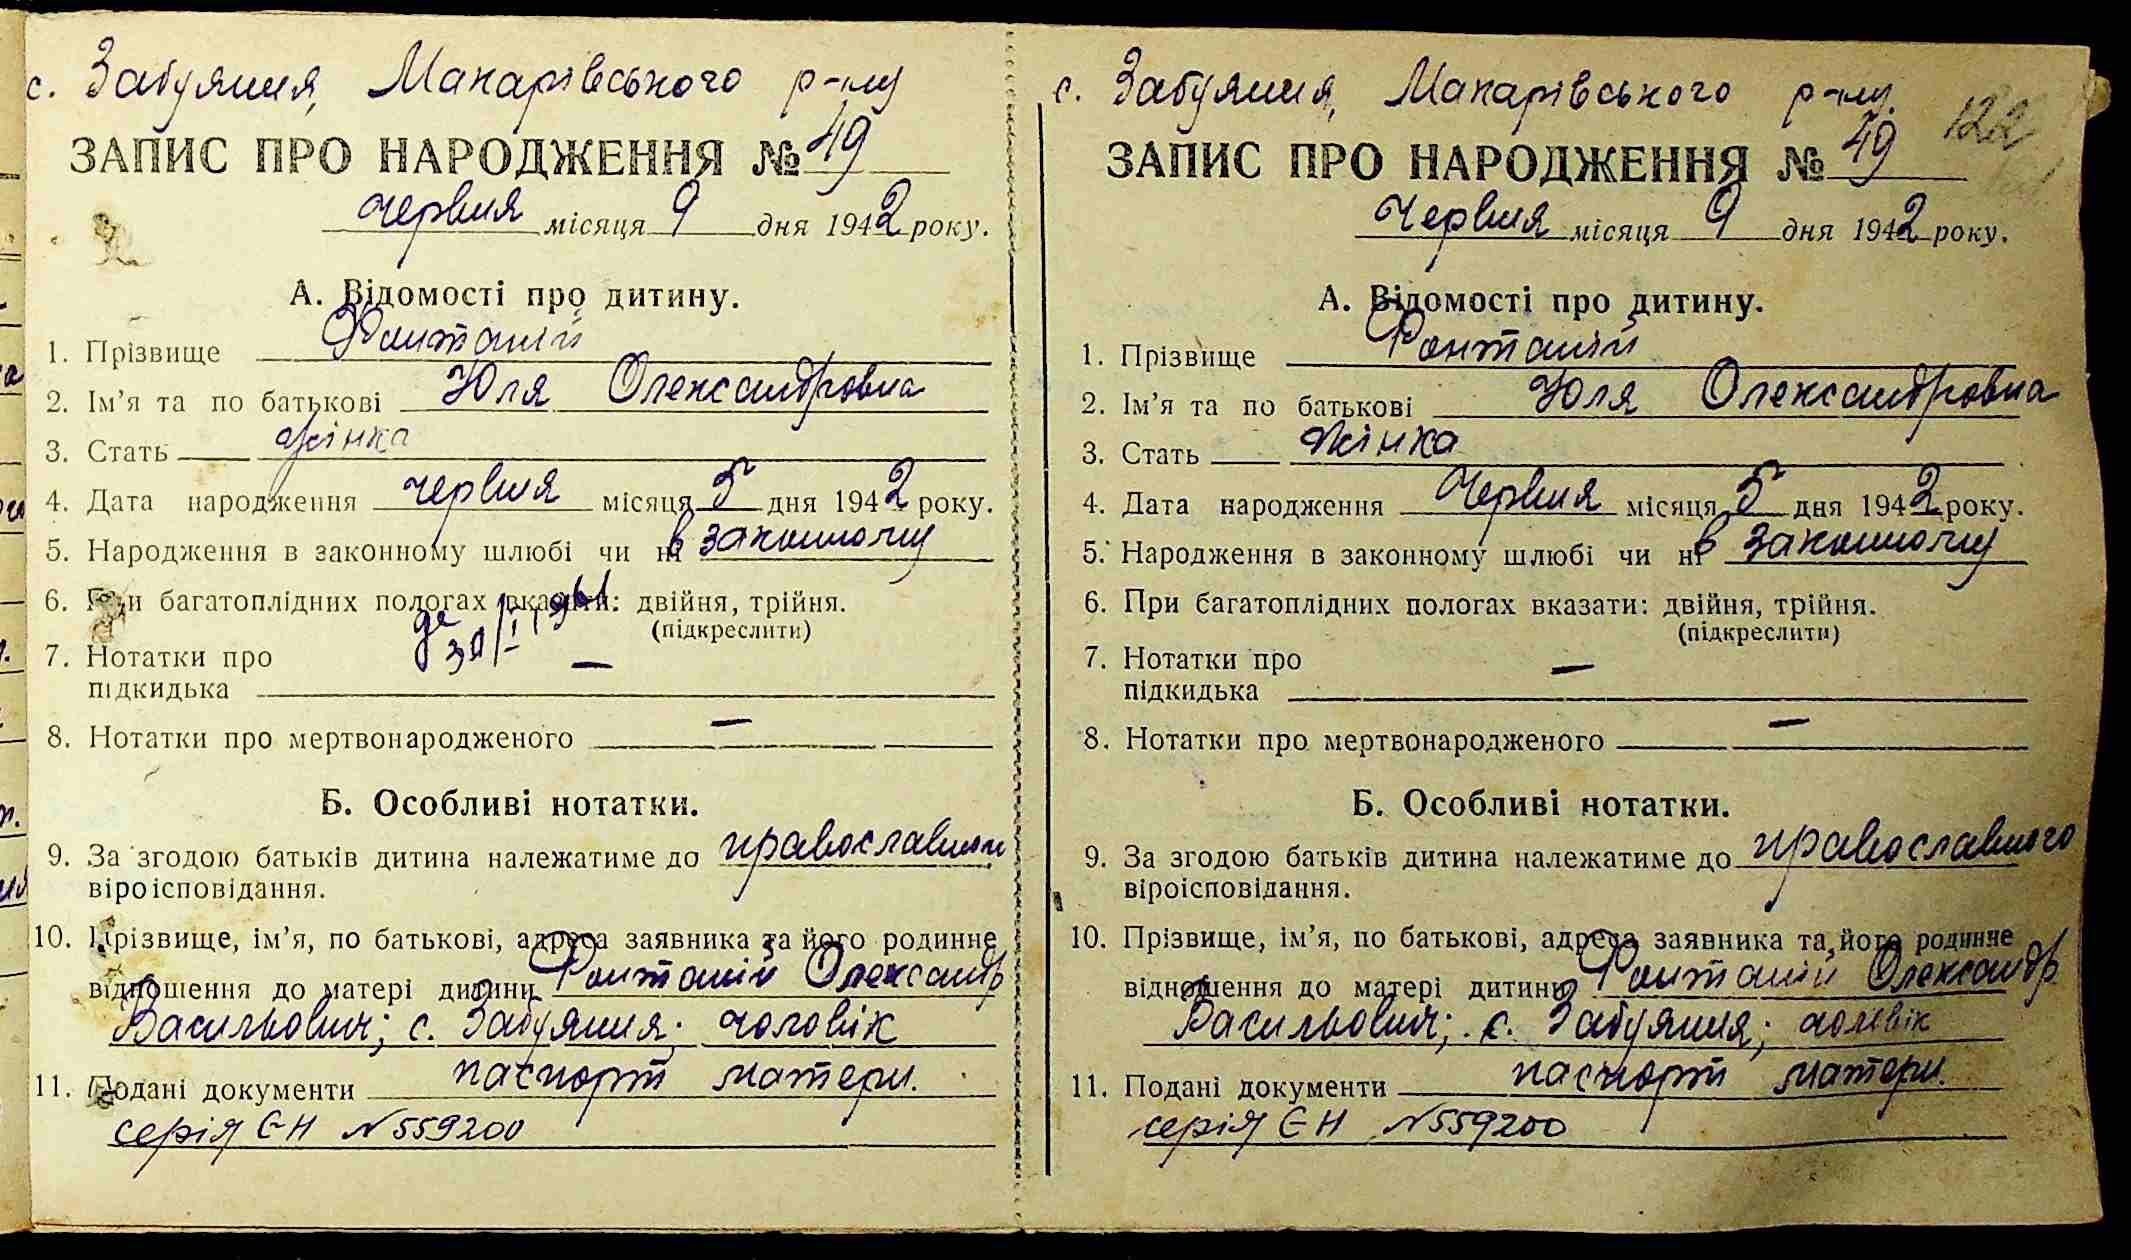 с. Забуяння, Макарівського р-ну
ЗАПИС ПРО НАРОДЖЕННЯ № 49
червня місяця 9 дня 1942 року.
А. Відомості про дитину.
1. Прізвище Фонтаній
2. Ім’я та по батькові Юля Олександровна
3. Стать жінка
4. Дата народження червня місяця 5 дня 1942 року.
5. Народження в законному шлюбі чи ні в законному
6. При багатоплідних пологах вказати: двійня, трійня.
(підкреслити)
7. Нотатки про
підкидька —
8. Нотатки про мертвонародженого —
Б. Особливі нотатки.
9. За згодою батьків дитина належатиме до
віроісповідання.
10. Прізвище, ім’я, по батькові, адреса заявника та його родинне
відношення до матері дитини Фонтаній Олександр
Васильович; с. Забуяння; чоловік
11. Подані документи паспорт матери.
серія ЄН №559200
с. Забуяння, Макарівського р-ну.
122
ЗАПИС ПРО НАРОДЖЕННЯ № 49
Червня місяця 9 дня 1942 року.
А. Відомості про дитину.
1. Прізвище Фонтаній
2. Ім’я та по батькові Юля Олександровна
3. Стать жінка
4. Дата народження Червня місяця 5 дня 1942 року.
5. Народження в законному шлюбі чи ні в законному
6. При багатоплідних пологах вказати: двійня, трійня.
(підкреслити)
7. Нотатки про
підкидька —
8. Нотатки про мертвонародженого —
Б. Особливі нотатки.
9. За згодою батьків дитина належатиме до православного
віроісповідання.
10. Прізвище, ім’я, по батькові, адреса заявника та його родинне
відношення до матері дитини Фонтаній Олександр
Васильович; с. Забуяння; чоловік
11. Подані документи паспорт матери.
серія ЄН №559200